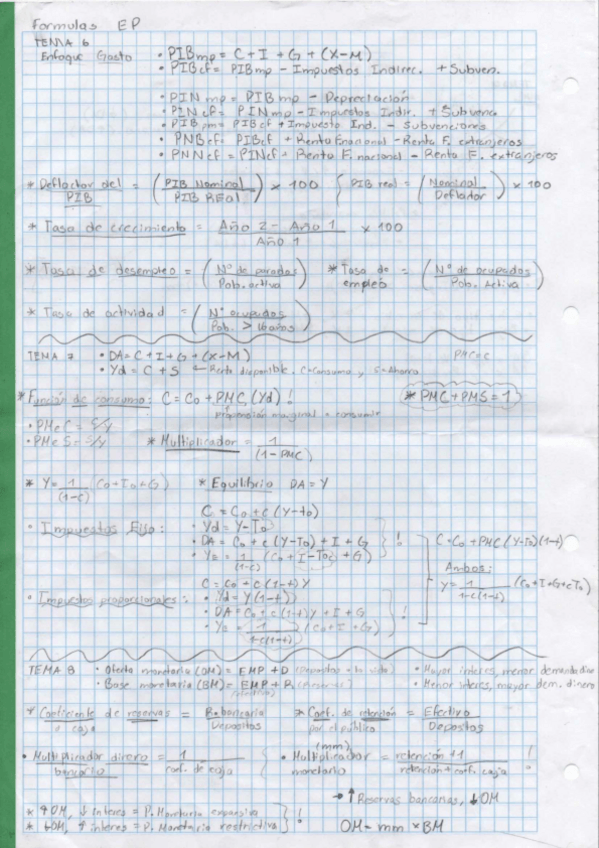 Formulas EP
TEMA 6
Enfoque Gasto • PIBmp = C + I + G + (X-M)
• PIBcf = PIBmp - Impuestos Indirec. + Subven.
• PINmp = PIBmp - Depreciación
• PINcf = PINmp - Impuestos Indir. + Subvenc.
• PIBpm = PIBcf + Impuesto Ind. - Subvenciones
• PNBcf = PIBcf + Renta F nacional - Renta F. extranjeros
• PNNcf = PINcf + Renta F. nacional - Renta F. extranjeros
* Deflactor del PIB = (PIB Nominal / PIB REAl) x 100 { PIB real = (Nominal / Deflactor) x 100
* Tasa de crecimiento = Año 2 - Año 1 / Año 1 x 100
* Tasa de desempleo = (Nº de parados / Pob. activa) * Tasa de empleo = (Nº de ocupados / Pob. Activa)
* Tasa de actividad = (Nº ocupados / Pob. > 16 años)
TEMA 7 • DA = C + I + G + (X-M) PMC = c
• Yd = C + S ← Renta disponible. C = Consumo y S = Ahorro
* Función de consumo: C = Co + PMC (Yd) ! * PMC + PMS = 1
propensión marginal a consumir
• PMeC = C/y
• PMeS = S/y * Multiplicador = 1 / (1 - PMC)
* Y = 1/(1-c) (Co + Io + G) * Equilibrio DA = Y
C = Co + c (Y - to)
• Impuestos Fijo: • Yd = Y - To
• DA = Co + c (Y-To) + I + G } ! C = Co + PMC (Y-To)(1-t)
• YE = 1/(1-c) (Co + I - Toc + G) Ambos:
C = Co + c (1-t) Y y = 1/1-c(1-t) (Co + I + G + cTo)
• Impuestos proporcionales: • Yd = Y (1-t)
• DA = Co + c (1-t) y + I + G } !
• YE = 1/1-c(1-t) (Co + I + G)
TEMA 8 • Oferta monetaria (OM) = EMP + D (Depositos a la vista) • Mayor interes, menor demanda dine
• Base monetaria (BM) = EMP + R (Reservas) • Menor interes, mayor dem. dinero
(efectivo)
* Coeficiente de reservas o caja = R. bancaria / Depositos * Coef. de retención por el público = Efectivo / Depositos
• Multiplicador dinero bancario = 1 / coef. de caja { • Multiplicador monetario (mm) = retención + 1 / retención + coef. caja !
→ ↑ Reservas bancarias, ↓ OM
* ↑ OM, ↓ interes = P. Monetaria expansiva } !
* ↓ OM, ↑ interes = P. Monetaria restrictiva OM = mm x BM